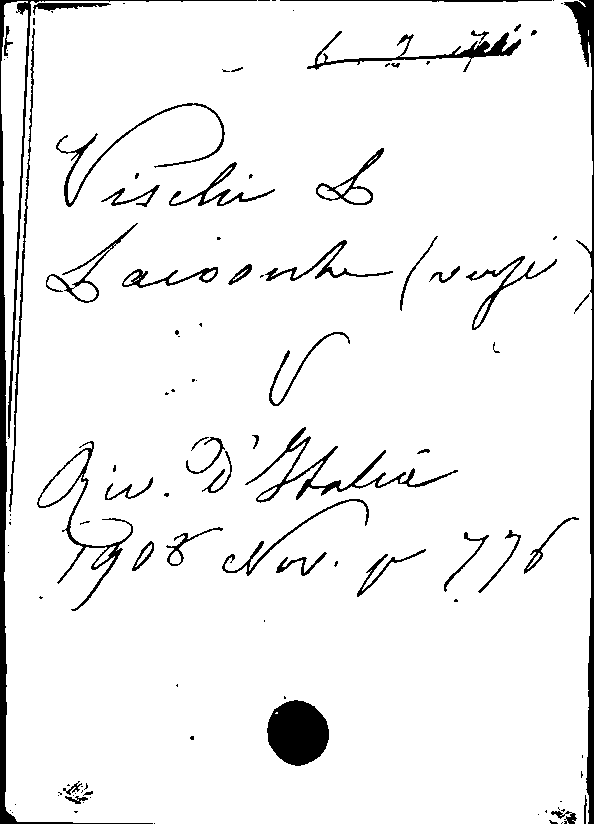 Vischi L
Laiosonte (versi)
V
Riv. D'Italia
1908 Nov. p 776